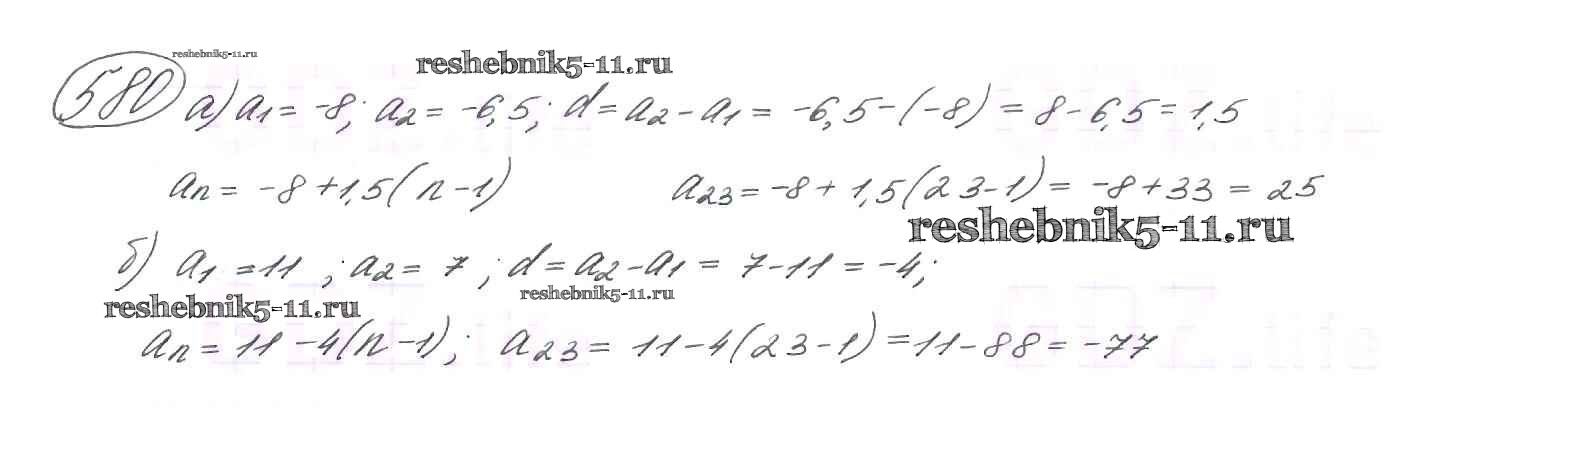 reshebnik5-11.ru
reshebnik5-11.ru
580 а) a₁ = -8; a₂ = -6,5; d = a₂ - a₁ = -6,5 - (-8) = 8 - 6,5 = 1,5
aₙ = -8 + 1,5(n - 1) a₂₃ = -8 + 1,5(23 - 1) = -8 + 33 = 25
reshebnik5-11.ru
б) a₁ = 11; a₂ = 7; d = a₂ - a₁ = 7 - 11 = -4;
reshebnik5-11.ru
reshebnik5-11.ru
aₙ = 11 - 4(n - 1); a₂₃ = 11 - 4(23 - 1) = 11 - 88 = -77